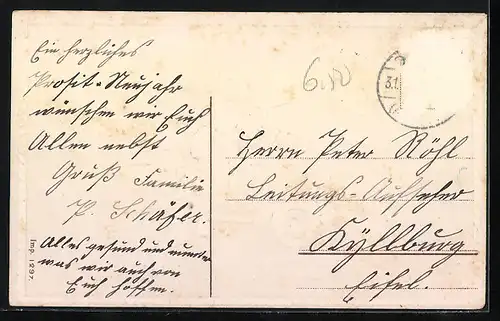 Ein herzliches
Prosit-Neujahr
wünschen wir Euch
Allen nebst
Gruß Familie
P. Schäfer.
Alles gesund und munter
was wir auch von
Euch hoffen.
Imp. 1297.
6.10
31
Herrn Peter Röhl
Leitungs-Aufseher
Kyllburg
Eifel.